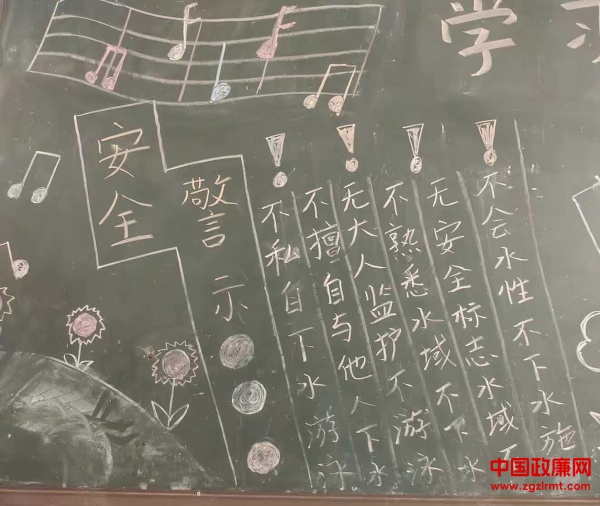 学
安全
警示
不私自下水游泳
不擅自与他人下水
无大人监护不游泳
不熟悉水域不下水
无安全标志水域
不会水性不下水施
中国政廉网
www.zgzlrmt.com